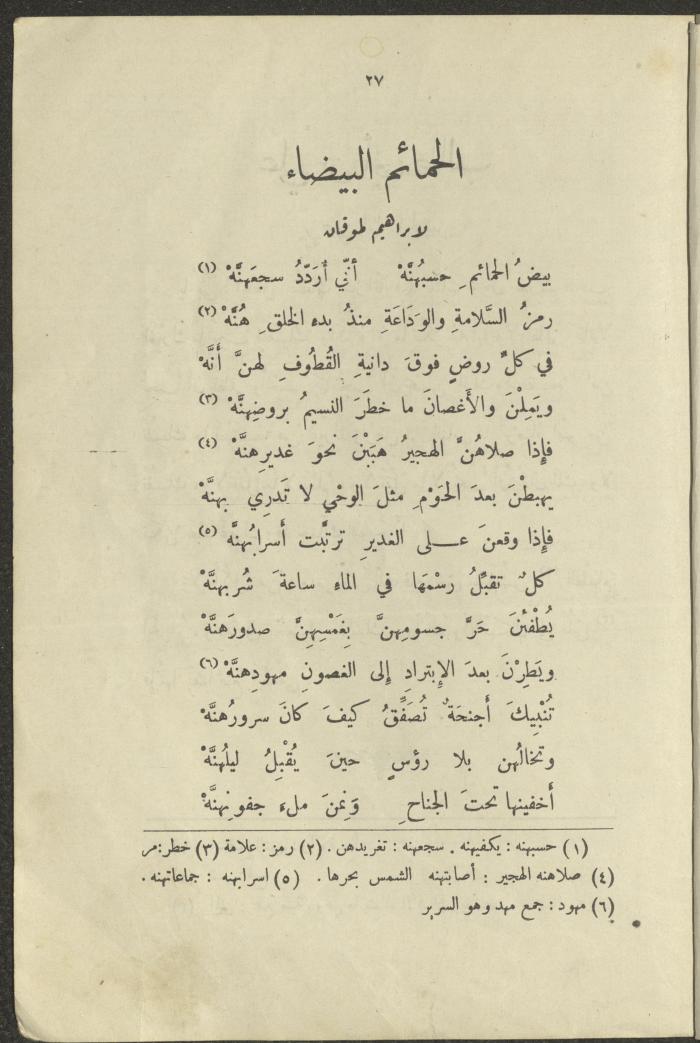 ٢٧
الحمائم البيضاء
لابراهيم طوقان
بيضُ الحمائمِ حسبُهُنَّهْ أنّي أُرَدّدُ سجعَهنَّهْ (١)
رمزُ السَّلامةِ والوَدَاعَةِ منذُ بدءِ الخلقِ هُنَّهْ (٢)
في كلِّ روضٍ فوقَ دانيةِ القُطُوفِ لهنَّ أَنَّهْ
ويَمِلْنَ والأَغصانَ ما خطَرَ النسيمُ بروضِهِنَّهْ (٣)
فإِذا صلاهُنَّ الهجيرُ هَبَبْنَ نحوَ غديرِهنَّهْ (٤)
يهبطْنَ بعدَ الحَوْمِ مثلَ الوحْيِ لا تَدرِي بهنَّهْ
فإِذا وقعنَ على الغديرِ ترتَّبت أَسرابُهنَّه (٥)
كلٌ تقبِّلُ رسْمَها في الماءِ ساعةَ شُربهنَّهْ
يُطْفئنَ حَرَّ جسومِهنَّ بِغَمْسِهِنَّ صدورَهنَّهْ
ويَطِرْنَ بعدَ الإِبترادِ إِلى الغصونِ مهودِهنَّهْ (٦)
تُنْبيكَ أَجنحَةٌ تُصَفِّقُ كيفَ كانَ سرورُهنَّهْ
وتخالُهن بلا رؤسٍ حينَ يُقْبِلُ ليلُهنَّهْ
أَخفينها تحتَ الجناحِ وَنِمنَ ملءَ جفونِهنَّهْ
(١) حسبهنه : يكفيهنه . سجعهنه : تغريدهن . (٢) رمز : علامة (٣) خطر : مر
(٤) صلاهنه الهجير : أصابتهنه الشمس بحرها . (٥) اسرابهنه : جماعاتهنه .
(٦) مهود : جمع مهد وهو السرير